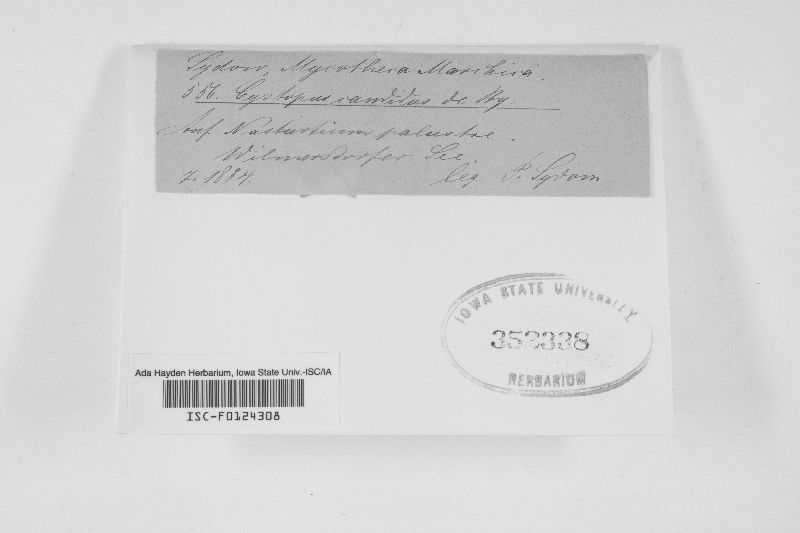 Sydow, Mycotheca Marchica.
556. Cystopus candidus de By.
Auf Nasturtium palustre.
Wilmersdorfer See
7. 1884. leg. P. Sydow
IOWA STATE UNIVERSITY
352338
HERBARIUM
Ada Hayden Herbarium, Iowa State Univ.-ISC/IA
ISC-F0124308